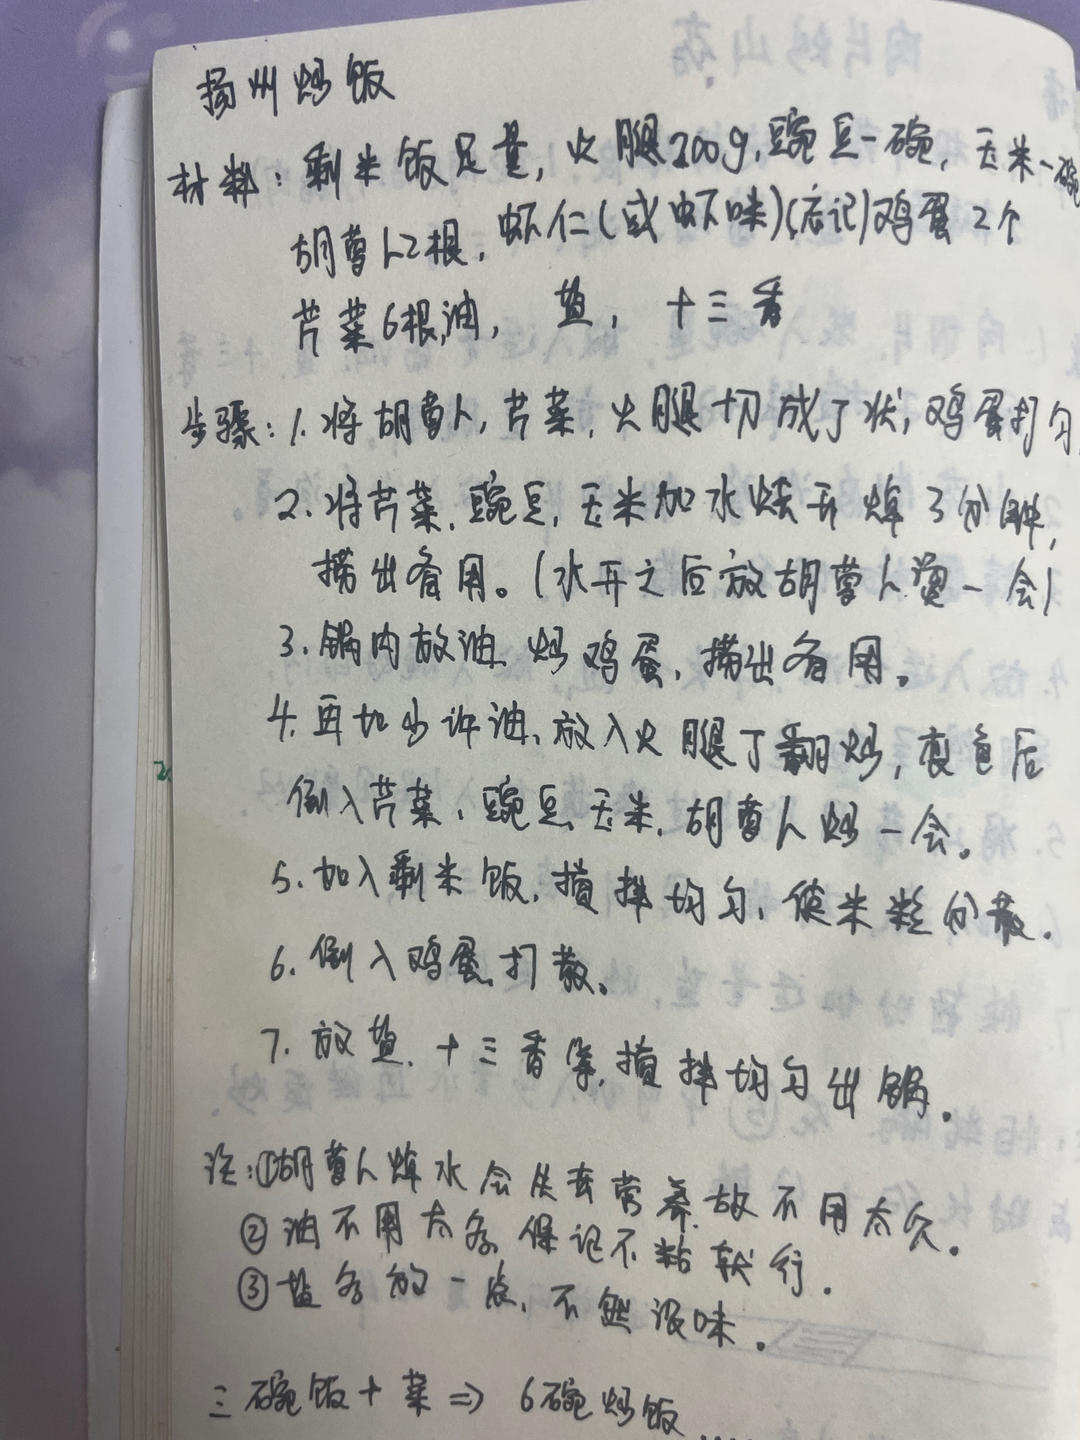 扬州炒饭
材料：剩米饭足量，火腿200g，豌豆一碗，玉米一碗
胡萝卜2根，虾仁（或虾味）（忘记）鸡蛋2个
芹菜6根，油，盐，十三香
步骤：1.将胡萝卜，芹菜，火腿切成丁状，鸡蛋打匀
2.将芹菜、豌豆，玉米加水烧开焯3分钟，
捞出备用。（水开之后放胡萝卜烫一会）
3.锅内放油、炒鸡蛋，捞出备用。
4.再加少许油、放入火腿丁翻炒，变色后
倒入芹菜、豌豆、玉米、胡萝卜炒一会。
5.加入剩米饭，搅拌均匀，使米粒分散.
6.倒入鸡蛋，打散。
7.放盐、十三香等，搅拌均匀出锅。
注：①胡萝卜焯水会失去营养，故不用太久。
②油不用太多，保记不粘就行.
③盐多放一点，不然没味。
三碗饭+菜⇒6碗炒饭......